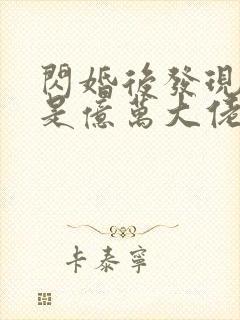 閃婚後發現
是億萬大佬
卡泰寧